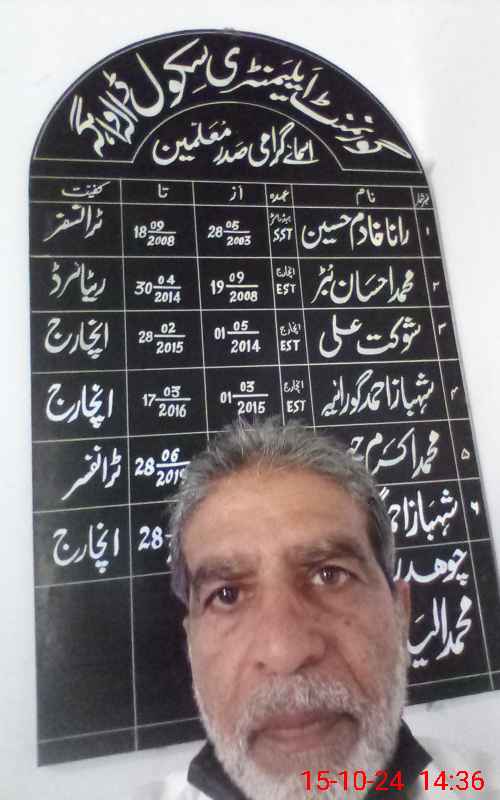 گورنمنٹ ایلیمنٹری سکول
اسمائے گرامی صدر معلمین
نمبر شمار نام عہدہ از تا کیفیت
۱ رانا خادم حسین ہیڈ ماسٹر SST 28 05/2003 18 09/2008 ٹرانسفر
۲ محمد احسان بُٹر انچارج EST 19 09/2008 30 04/2014 ریٹائرڈ
۳ شوکت علی انچارج EST 01 05/2014 28 02/2015 انچارج
۴ شہباز احمد گورائیہ انچارج EST 01 03/2015 17 03/2016 انچارج
۵ محمد اکرم 28 06 ٹرانفسر
۶ شہباز احمد 28 انچارج
چوھدر
محمد الیا
15-10-24 14:36